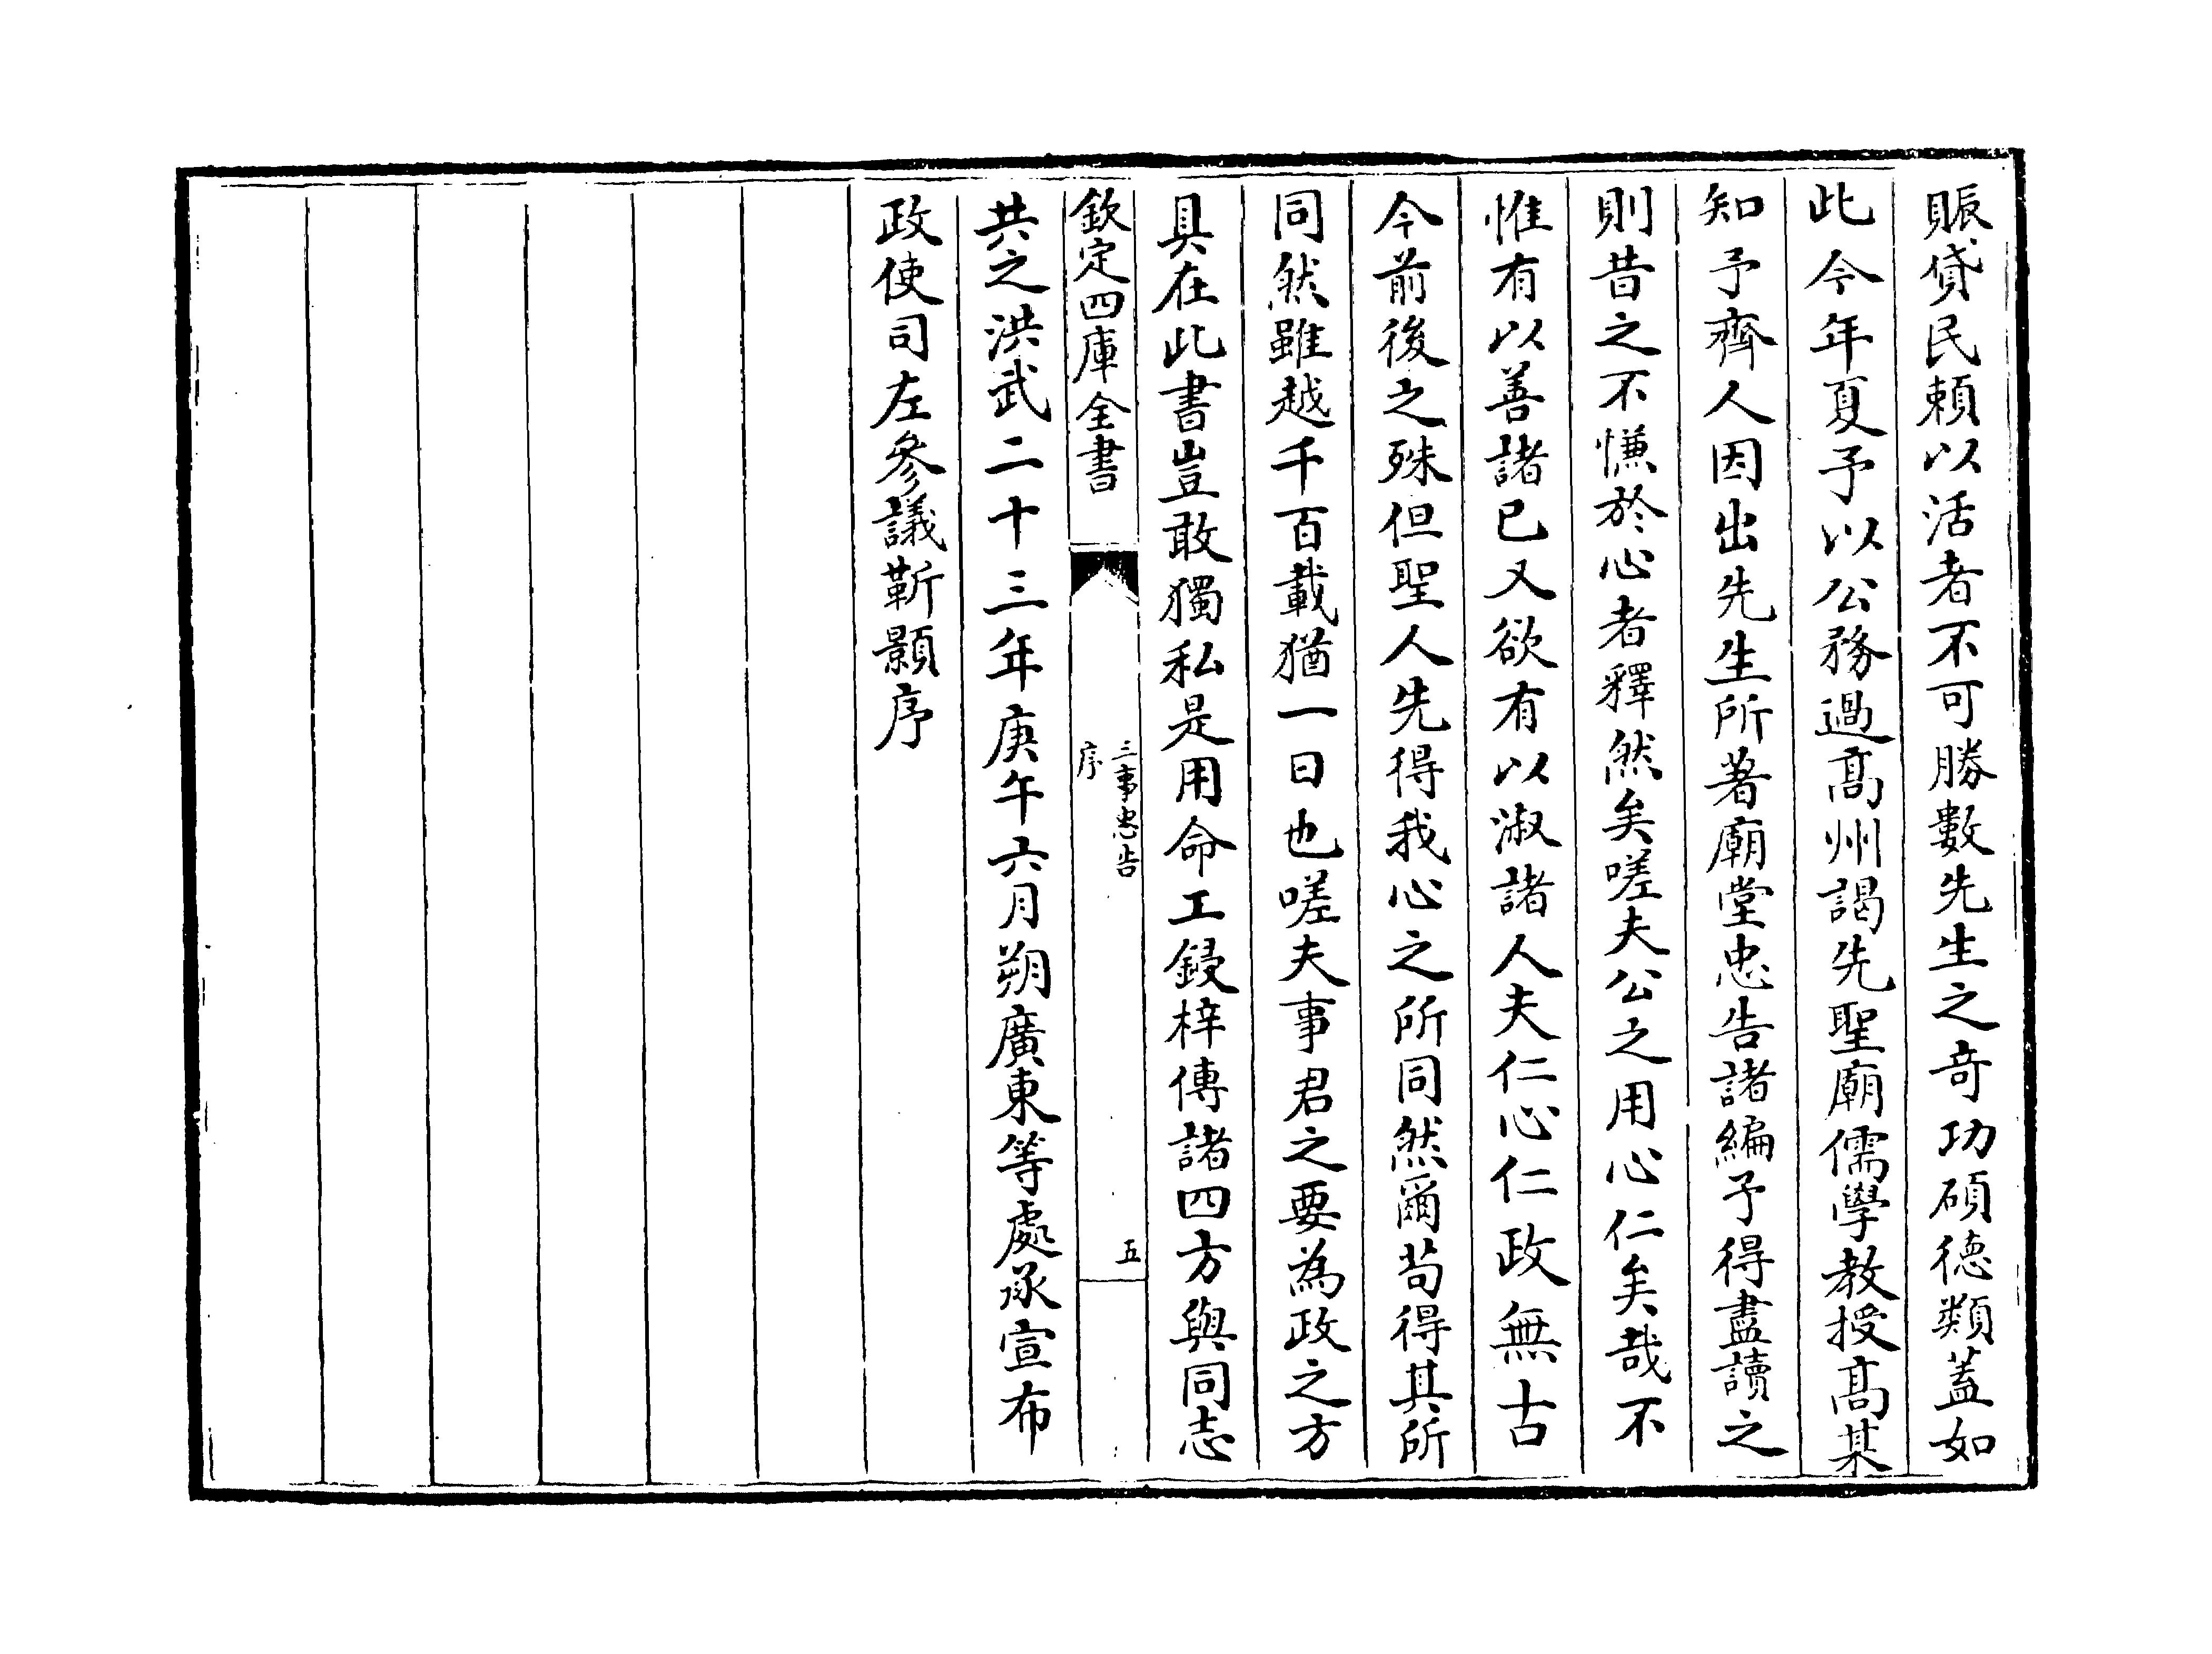 賑貸民頼以活者不可勝數先生之奇功碩德類蓋如
此今年夏予以公務過髙州謁先聖廟儒學教授髙某
知予齊人因出先生所著廟堂忠告諸編予得盡讀之
則昔之不慊於心者釋然矣嗟夫公之用心仁矣哉不
惟有以善諸已又欲有以淑諸人夫仁心仁政無古
今前後之殊但聖人先得我心之所同然爾茍得其所
同然雖越千百載猶一日也嗟夫事君之要為政之方
具在此書豈敢獨私是用命工鋟梓傳諸四方與同志
欽定四庫全書
三事忠告
序
五
共之洪武二十三年庚午六月朔廣東等處承宣布
政使司左參議靳顥序